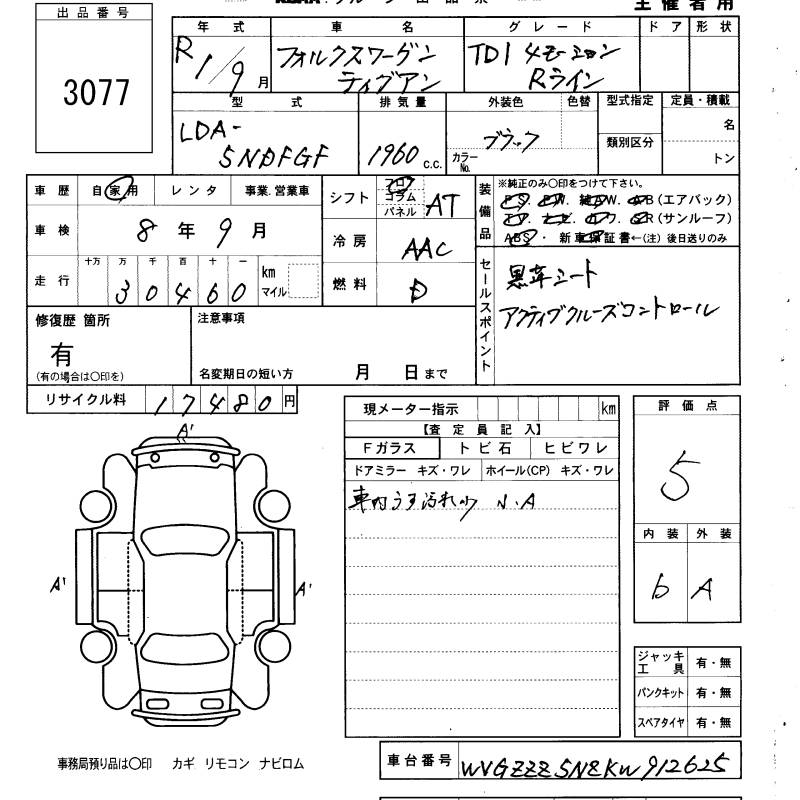 主催者用
出品番号
3077
年式 車名 グレード ドア 形状
R1/9月 フォルクスワーゲン ティグアン TDI 4モーション Rライン
型式 排気量 外装色 色替 型式指定 定員・積載
LDA-5NDFGF 1960 c.c. ブラック カラーNo. 類別区分 名 トン
車歴 自家用 レンタ 事業.営業車
車検 8年9月
走行 十万 万 千 百 十 一
30460 km マイル
シフト フロア コラム パネル AT
冷房 AAC
燃料 D
装備品
※純正のみ〇印をつけて下さい。
PS. PW. 純AW. AB(エアバック)
SR(サンルーフ)
ABS・ 新車保証書←(注) 後日送りのみ
セールスポイント
黒革シート
アクティブクルーズコントロール
修復歴 箇所
有
(有の場合は〇印を)
注意事項
名変期日の短い方 月 日まで
リサイクル料 17480円
現メーター指示 km
【査定員記入】
Fガラス トビ石 ヒビワレ
ドアミラー キズ・ワレ ホイール(CP) キズ・ワレ
車内うす汚れ小 N.A
評価点
5
内装 外装
b A
A'
A' A'
ジャッキ工具 有・無
パンクキット 有・無
スペアタイヤ 有・無
事務局預り品は〇印 カギ リモコン ナビロム
車台番号 WVGZZZ5NZKW912625